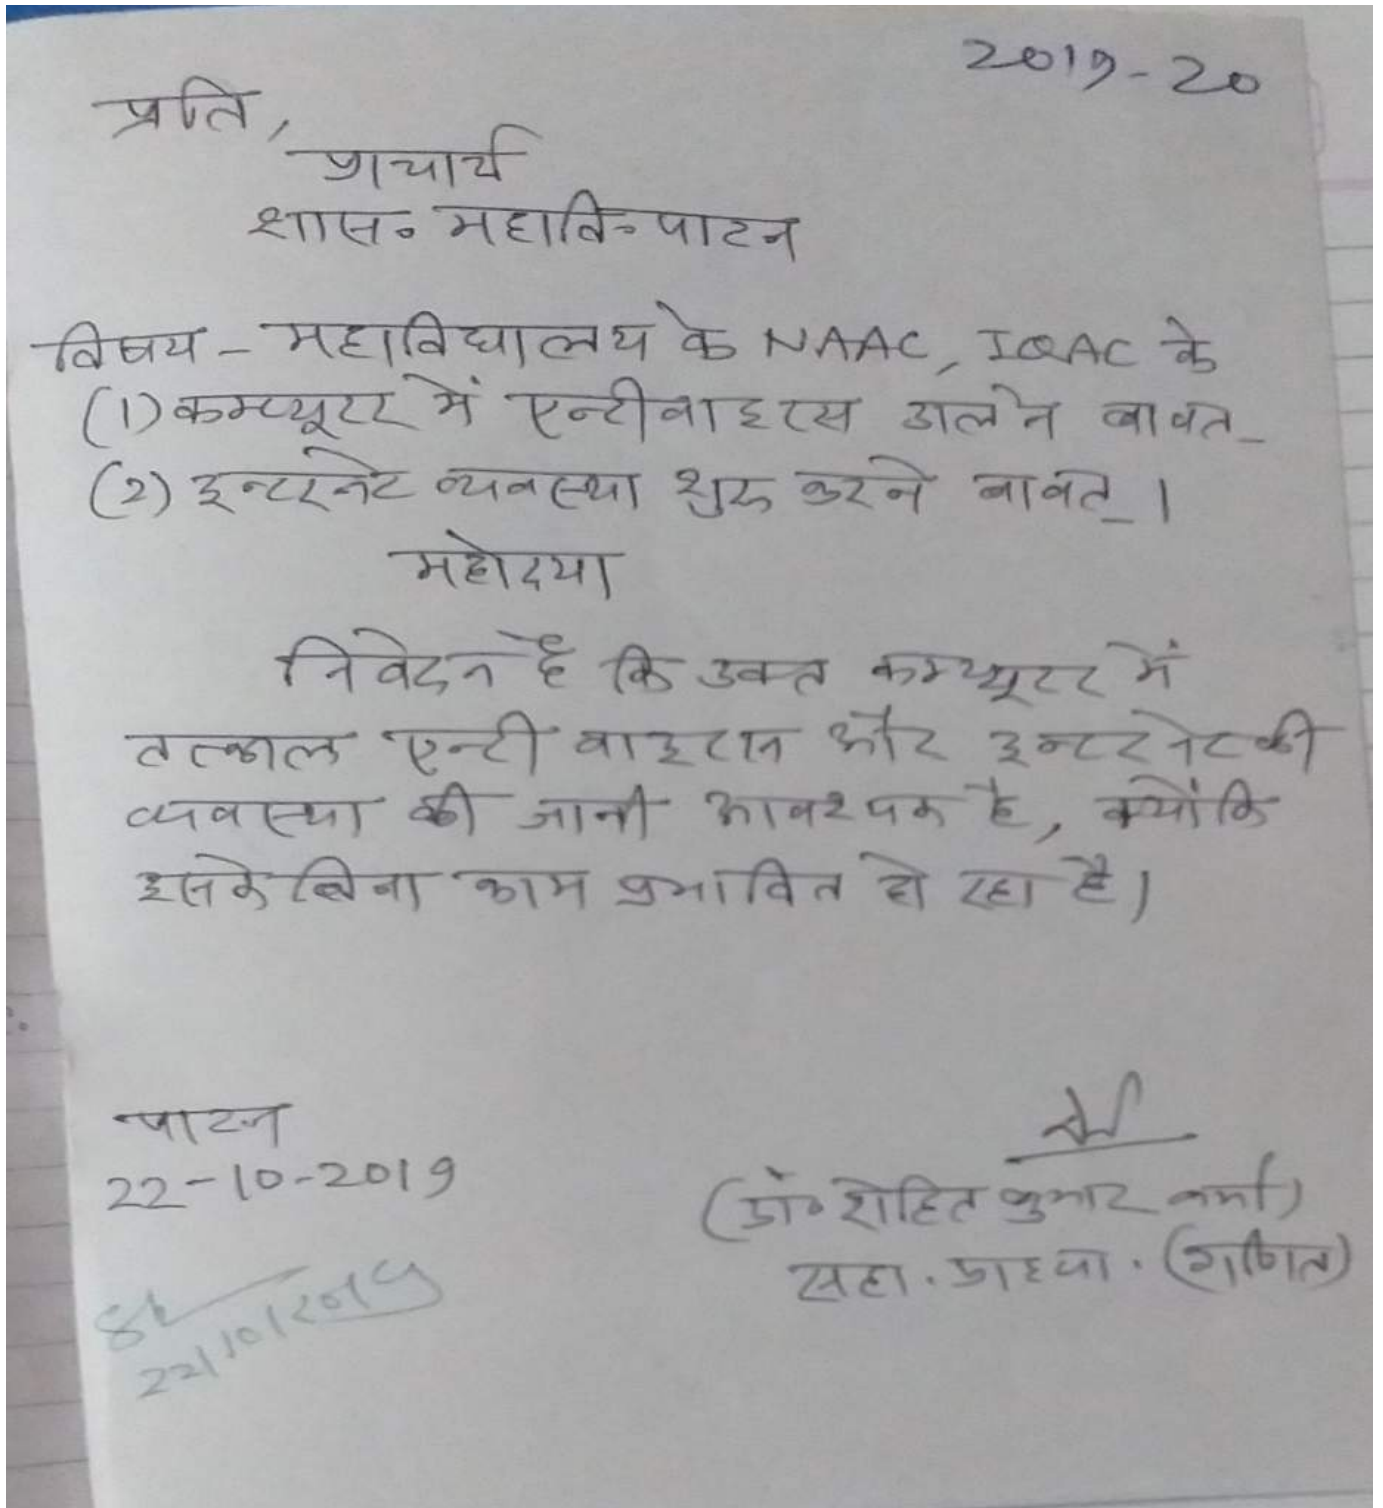 2019-20
प्रति,
प्राचार्य
शास० महावि० पाटन
विषय - महाविद्यालय के NAAC, IQAC के
(1) कम्प्यूटर में एन्टीवाइरस डालने बावत_
(2) इन्टरनेट व्यवस्था शुरू करने बावत_।
महोदया
निवेदन है कि उक्त कम्प्यूटर में
तत्काल एन्टी वाइरस और इन्टरनेट की
व्यवस्था की जानी आवश्यक है, क्योंकि
इसके बिना काम प्रभावित हो रहा है।
पाटन
22-10-2019
(डॉ० रोहित कुमार वर्मा)
सहा. प्राध्या. (गणित)
22/10/2019